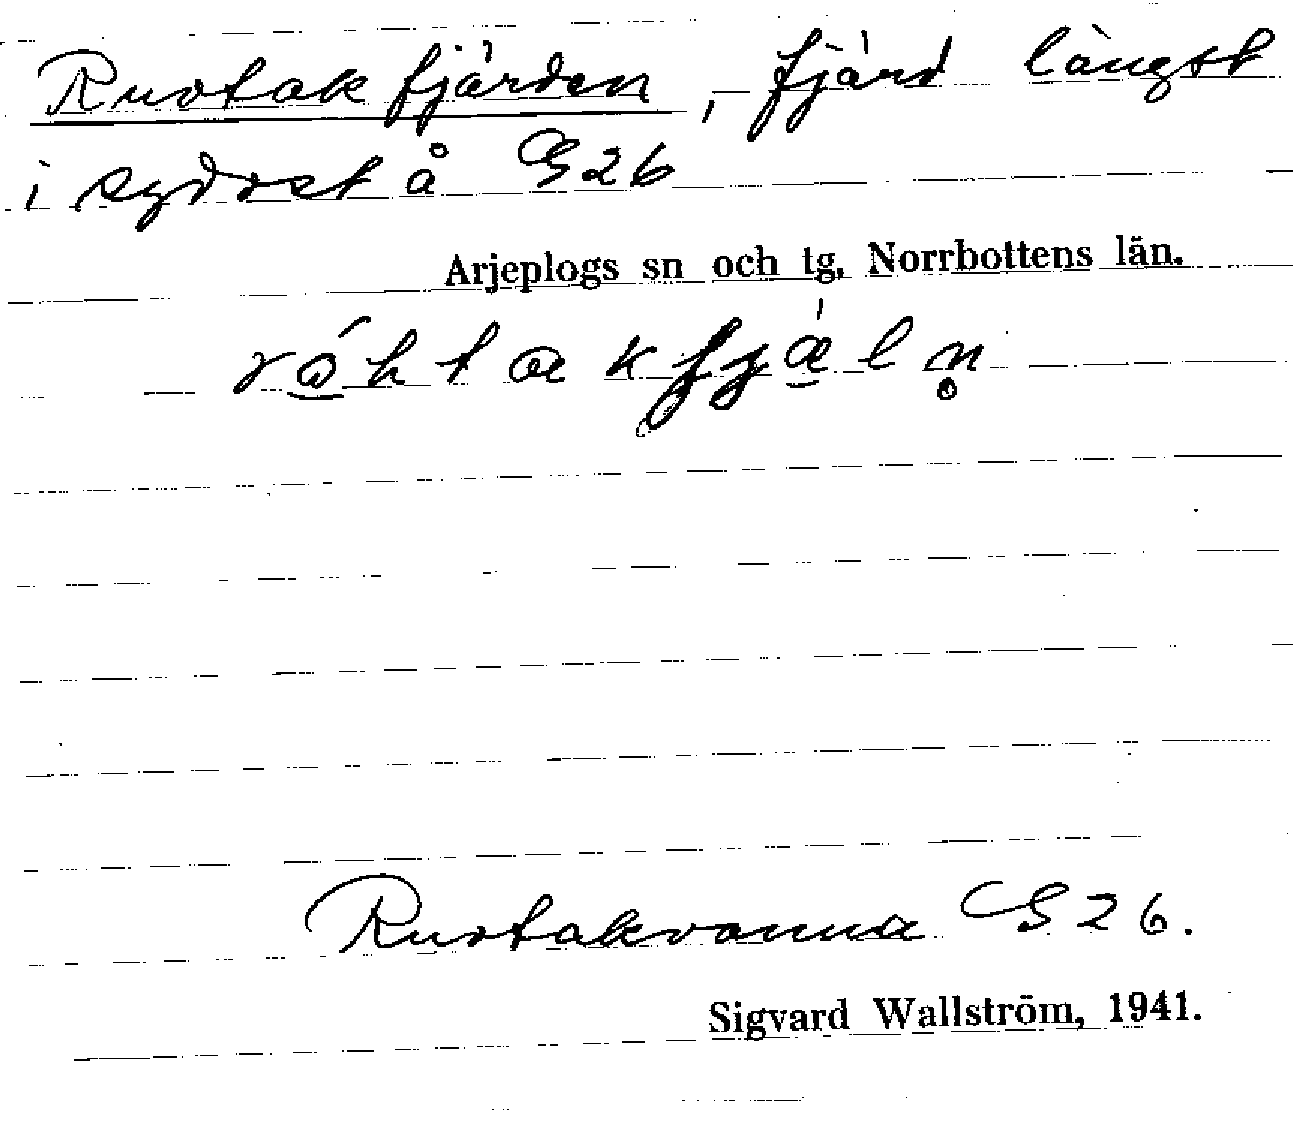 Ruotakfjärden, fjärd längst
i sydost å G26
Arjeplogs sn och tg, Norrbottens län.
Ruotakvanna G 26.
Sigvard Wallström, 1941.